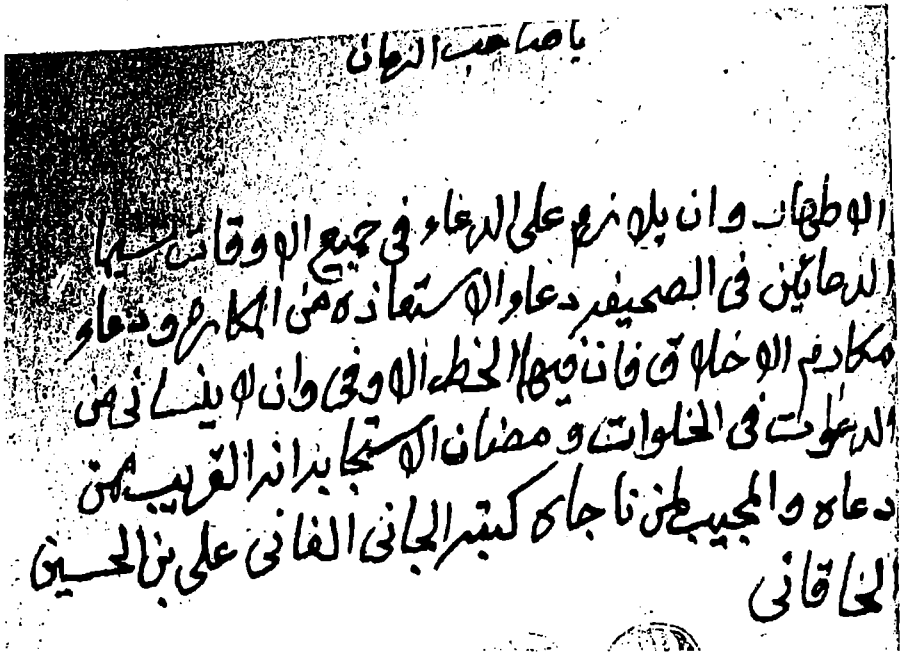 يا صاحب الزمان
الاطهاب وان يلازم على الدعاء في جميع الاوقات سيما
الدعائين في الصحيفه دعاء الاستعاذه من المكاره ودعاء
مكارم الاخلاق فان فيها الحظ الاوفى وان لا ينساني من
الدعوات في الخلوات و مضان الاستجابه انه القريب ممن
دعاه والمجيب لمن ناجاه كتبه الجاني الفاني علي بن الحسين
الخاقاني